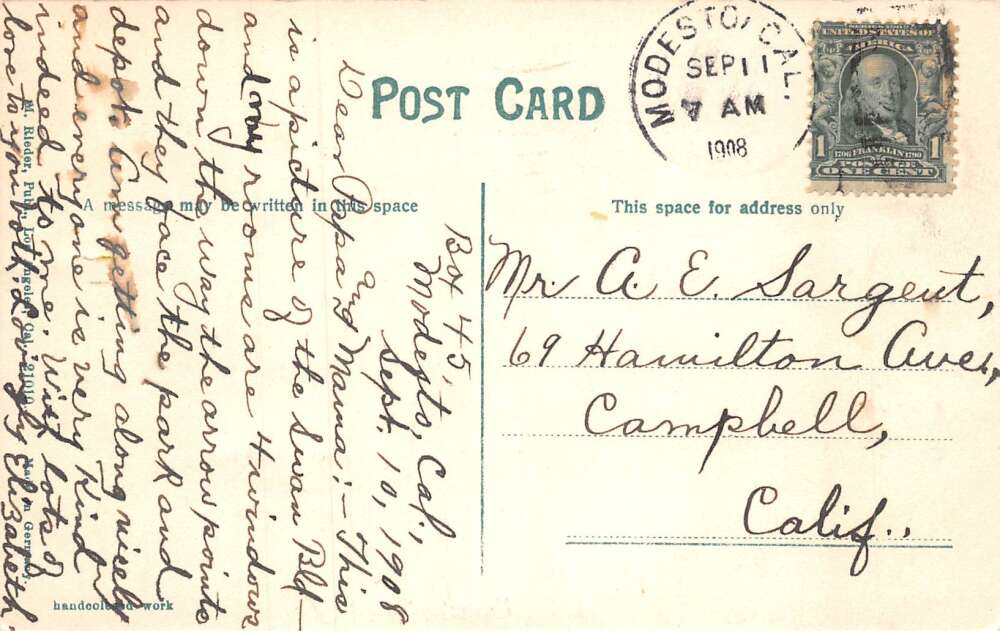 POST CARD
A message may be written in this space
This space for address only
MODESTO, CAL.
SEP 11
7 AM
1908
SERIES 1902
UNITED STATES OF
AMERICA
1
1706 FRANKLIN 1790
1
POSTAGE
ONE CENT
Mr. A. E. Sargent,
69 Hamilton Ave.,
Campbell,
Calif.,
Box 45,
Modesto, Cal.,
Sept. 10, 1908
Dear Papa and Mama:- This
is a picture of the Swan Bld-
and my rooms are 4 windows
down the way the arrow points
and they face the park and
depot. Am getting along nicely
and everyone is very kind
indeed to me. With lots of
love to you both, Lovingly Elizabeth.
M. Rieder, Publ., Los Angeles, Cal. 21010 Made in Germany.
handcolored work